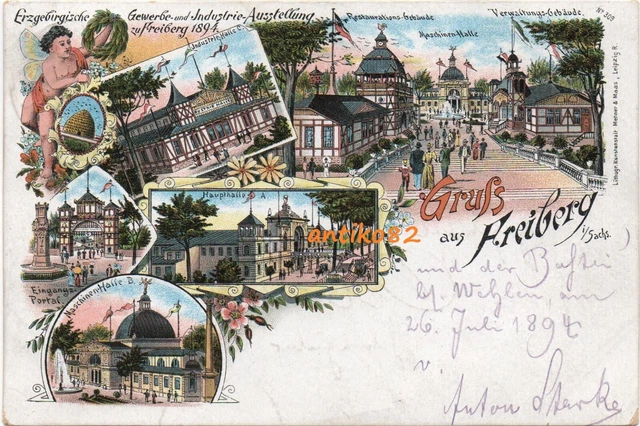 Erzgebirgische Gewerbe- und Industrie-Ausstellung
zu Freiberg 1894.
Industriehalle C.
Restaurations-Gebäude
Maschinen-Halle
Verwaltungs-Gebäude.
No 309
Lithogr. Kunstanstalt Mehner & Maas, Leipzig R.
Eingangs-
Portal
Haupthalle A.
antiko82
Maschinen-Halle B.
Gruss
aus Freiberg
i/Sachs.
und der Bastei
26. Juli 1894
v.
Anton Starke